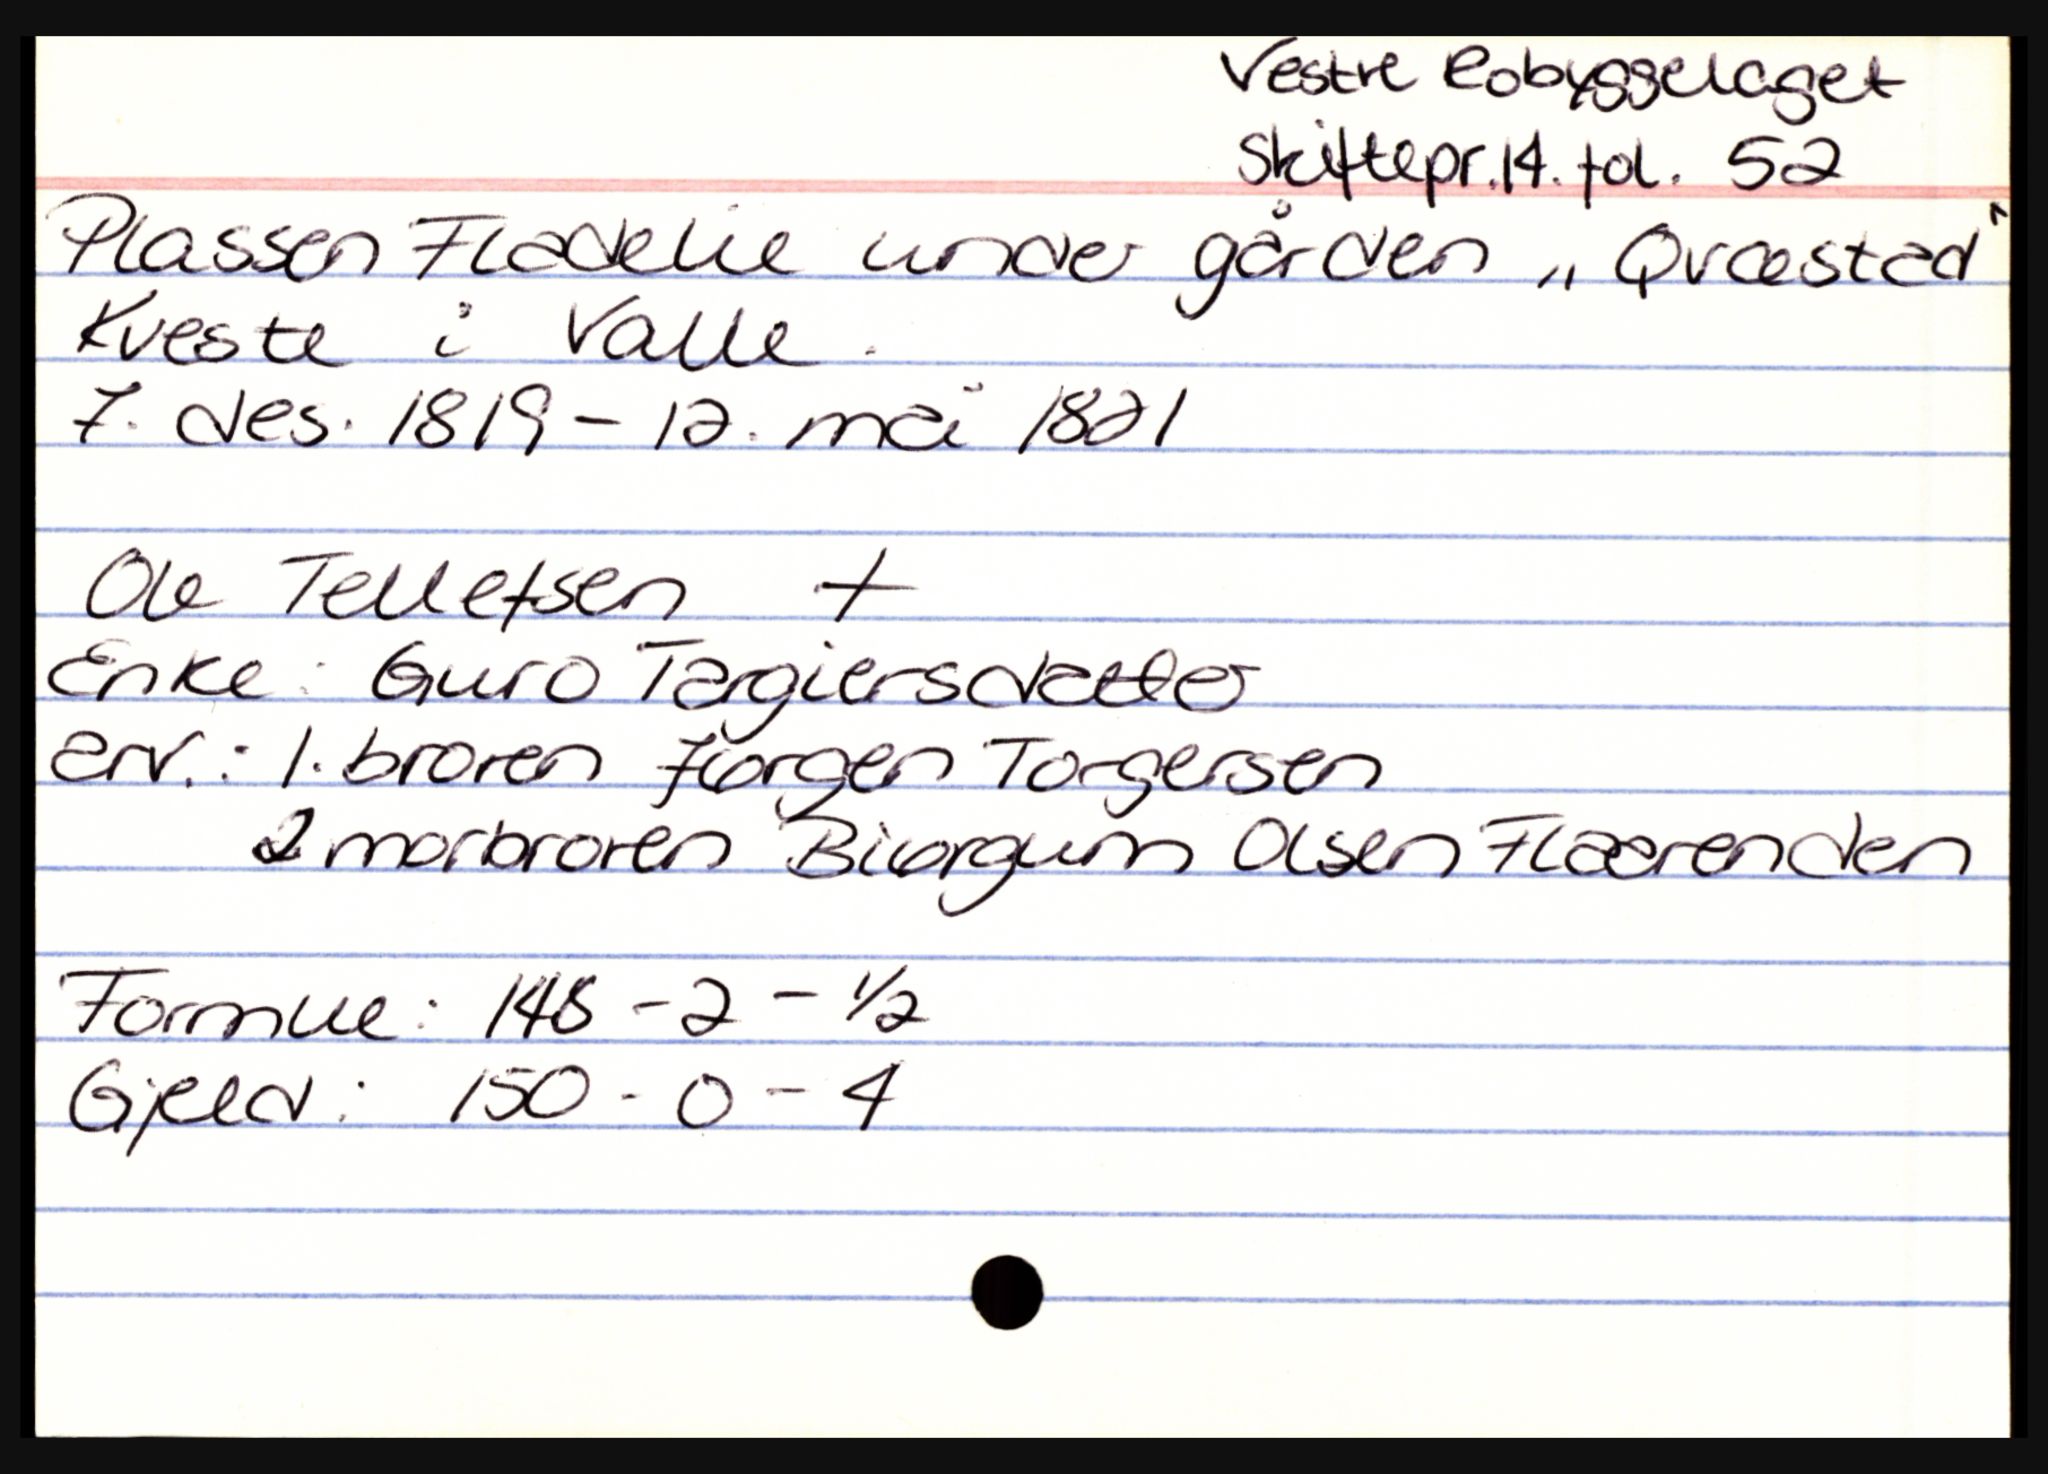 Vestre Robyggelaget
Skiftepr.14. fol. 52
Plassen Fladelie under gården „Qvæstad"
Kveste i Valle.
7. des. 1819 - 12. mai 1821
Ole Tellefsen +
Enke: Guro Targiersdatter
arv.: 1. broren Jørgen Torgersen
2 morbroren Biørgum Olsen Flaarenden
Formue: 148 - 2 - 1/2
Gjeld: 150 - 0 - 4